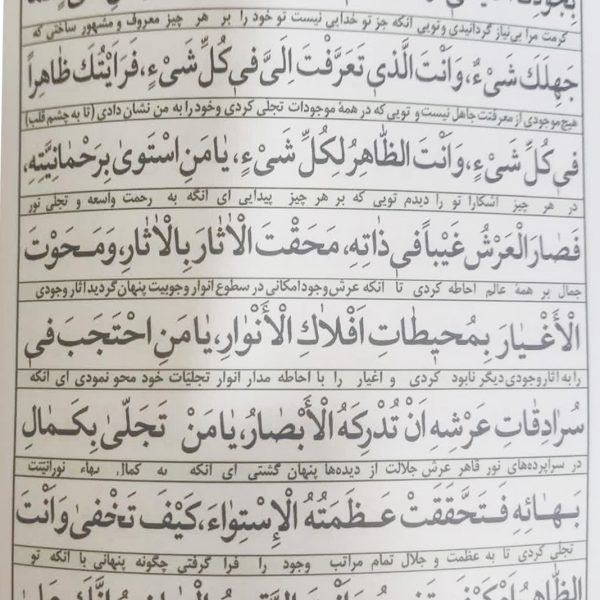 کرمت مرا بی‌نیاز گردانیدی و تویی آنکه جز تو خدایی نیست تو خود را بر هر چیز معروف و مشهور ساختی که
جَهِلَكَ شَيْءٌ، وَاَنْتَ الَّذي تَعَرَّفْتَ اِلَيَّ في كُلِّ شَيْءٍ، فَرَاَيْتُكَ ظاهِراً
هیچ موجودی از معرفتت جاهل نیست و تویی که در همهٔ موجودات تجلی کردی و خود را به من نشان دادی (تا به چشم قلب)
في كُلِّ شَيْءٍ، وَاَنْتَ الظّاهِرُ لِكُلِّ شَيْءٍ، يا مَنِ اسْتَوىٰ بِرَحْمانِيَّتِهِ،
در هر چیز آشکارا تو را دیدم تویی که بر هر چیز پیدایی ای آنکه به رحمت واسعه و تجلی نور
فَصارَ الْعَرْشُ غَيْباً في ذاتِهِ، مَحَقْتَ الْاٰثارَ بِالْاٰثارِ، وَمَحَوْتَ
جمال بر همهٔ عالم احاطه کردی تا آنکه عرش وجود امکانی در سطوع انوار وجوبیت پنهان گردید آثار وجودی
الْاَغْيارَ بِمُحيطاتِ اَفْلاكِ الْاَنْوارِ، يا مَنِ احْتَجَبَ في
را به آثار وجودی دیگر نابود کردی و اغیار را با احاطه مدار انوار تجلیّات خود محو نمودی ای آنکه
سُرادِقاتِ عَرْشِهِ اَنْ تُدْرِكَهُ الْاَبْصارُ، يا مَنْ تَجَلّىٰ بِكَمالِ
در سراپرده‌های نور قاهر عرش جلالت از دیده‌ها پنهان گشتی ای آنکه به کمال بهاء نورانیّتت
بَهائِهِ فَتَحَقَّقَتْ عَظَمَتُهُ الْاِسْتِواءَ، كَيْفَ تَخْفىٰ وَاَنْتَ
تجلی کردی تا به عظمت و جلال تمام مراتب وجود را فرا گرفتی چگونه پنهانی با آنکه تو